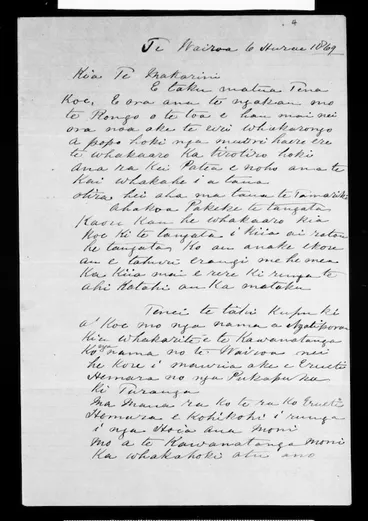 Te Wairoa 6 Hurae 1869
Kia Te Makarini
E taku matua Tena
Koe, E ora ana te ngakau mo
te Rongo o te toa e hau mai nei
ora noa ake te wri whakarongo
a popo hoki nga muturi haere ere
te whakaaro Ka hoki
Ana ra Kei Patea e noho ana te
Kai whakahe i a taua
otira hei aha ma taua te Tamariki
ahakoa Pakeke te tangata
Kaou Kau he whakaaro kia
koe Ki te tangata i kiia ai ratou
he tangata, Ko au anake ekore
au e tahuri erangi me he mea
Ka Kiia mai e rere Ki runga te
ahi Kotahi au Ka mataku
Tenei te tahi Kupu ki
a Koe mo nga nama a Ngatiporou
Kia whakaritea e te Kawanatanga
Ko nga nama no te Wairoa nei
he kore i mauria ake e Erueti
Hemara no nga Pukapuka
ki Turanga
Ma Maua ra Ko te ra Ko Erueti
Hemara e Kohikohi i runga
i nga Hoia ana Moni
Mo a te Kawanatanga moni
Ka whakahoki atu ano